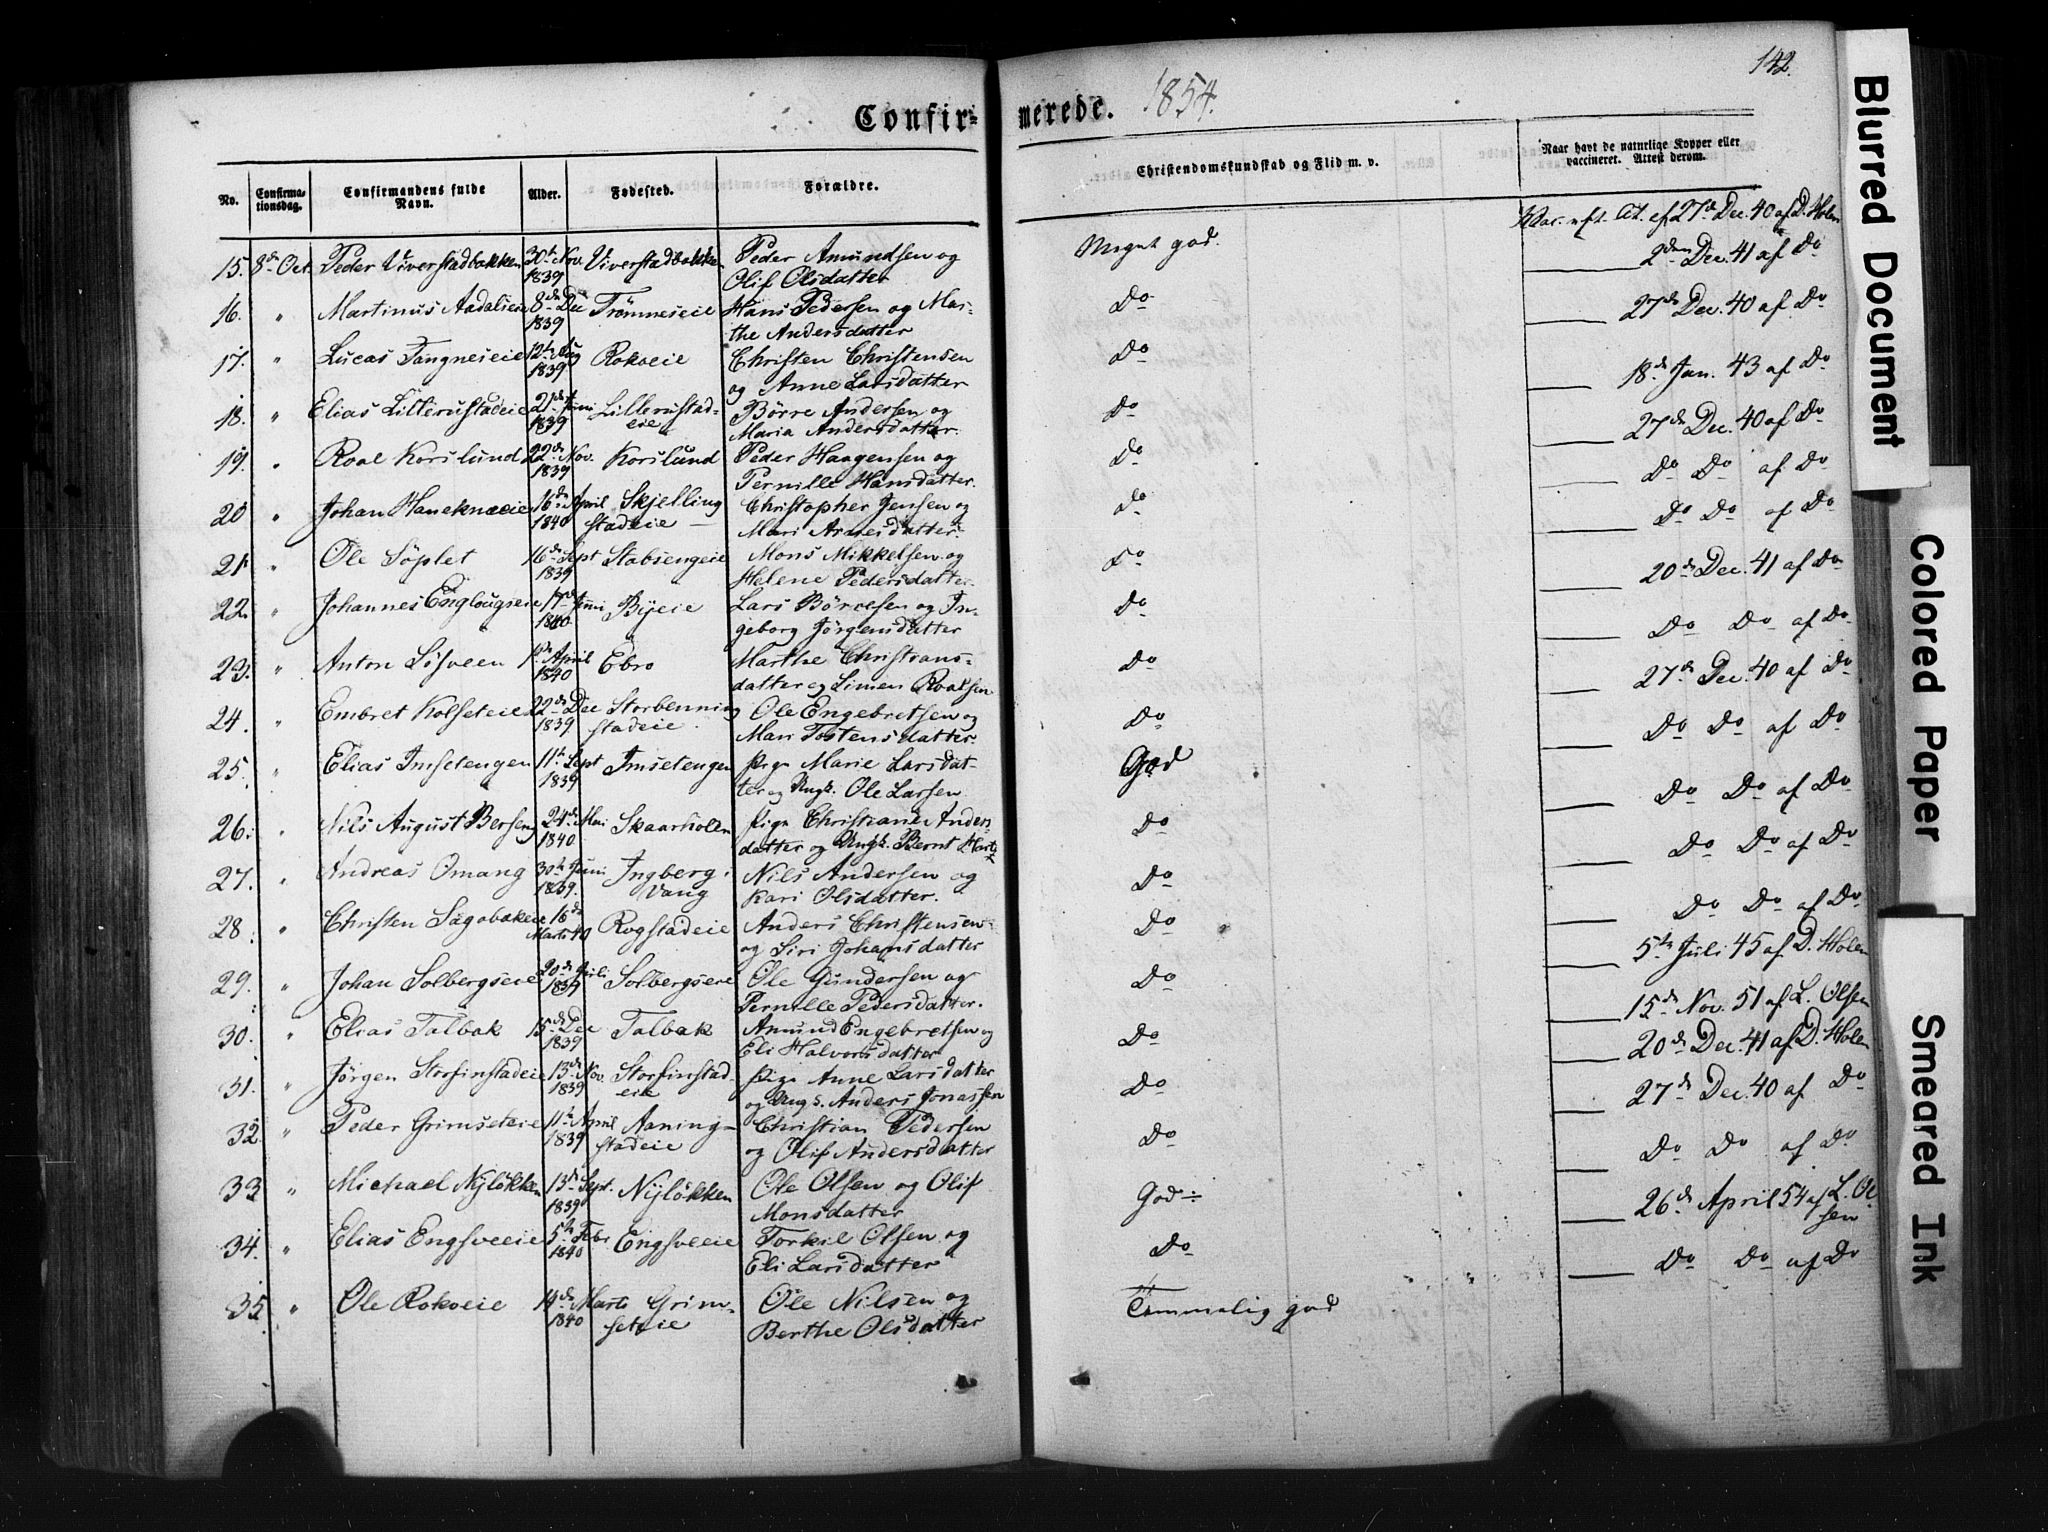 142.
Confir=
merede. 1854.
No.
Confirma-
tionsdag.
Confirmandens fulde
Navn.
Alder.
Fødested.
Forældre.
Christendomskundskab og Flid m. v.
Naar havt de naturlige Kopper eller
vaccineret. Attest derom.
15. 8de Oct. Peder Viverstadbakken 30te Nov. 1839 Viverstadbakken Peder Amundsen og Meget god. Vac. Att. af 27de Dec. 40 af D. Holm
Olif Olsdatter 2den Dec. 41 af Do
16. " Martinus Aadalseie 8de Dec 1839 Trømneseie Hans Pedersen og Mar- Do 27de Dec. 40 af Do
the Andersdatter
17. " Lucas Tangneseie 12te Aug 1839 Rokoeie Christen Christensen Do 18de Jan. 43 af Do
og Anne Larsdatter
18. " Elias Lillerustadeie 21de Juni 1839 Lillerustad- Børre Andersen og Do 27de Dec. 40 af Do
eie Maria Andersdatter.
19. " Roal Korslund 22de Nov. 1839 Korslund Peder Haagensen og Do Do Do af Do
Pernille Hansdatter.
20 " Johan Hanekneeie 16de April 1840 Skjelling Christopher Jensen og Do Do Do af Do
stadeie Mari Arnesdatter.
21. " Ole Søplet 16de Sept 1839 Stabsengeie Mons Mikkelsen og Do 20de Dec. 41 af Do
Helene Pedersdatter.
22. " Johannes Englougseie 17de Juni 1840 Byeie Lars Børresen og In- Do Do Do af Do
geborg Jørgensdatter
23. " Anton Løsveen 1de April 1840 Ebro Marthe Christians- Do 27de Dec. 40 af Do
datter og Simen Roalsen
24. " Embret Kolseteie 22de Dec 1839 Storbenning Ole Engebretsen og Do Do Do af Do
stadeie. Mari Tostensdatter.
25. " Elias Imsetengen 11te Sept 1839 Imsetengen Pige Marie Larsdat- God Do Do af Do
ter og Ungk. Ole Larsen
26. " Nils August Berseng 24de Mai 1840 Skaarholen Pige Christiane Anders- Do Do Do af Do
datter og Ungk. Bernt
27. " Andreas Omang 30te Juni 1839. Ingberg i Nils Andersen og Do Do Do af Do
Vang Kari Olsdatter.
28. " Christen Sagabakeie 16de Marts 40 Rogstadeie Anders Christensen Do 5te Juli 45 af D. Holm
og Siri Johansdatter
29. " Johan Solbergseie 20de Juli 1839 Solbergseie Ole Gundersen og Do 15de Nov. 51 af L. Olsen
Pernille Pedersdatter.
30. " Elias Talbak 15de Dec 1839 Talbak Amund Engebretsen og Do 20de Dec. 41 af D. Holm
Eli Halvorsdatter
31. " Jørgen Storfinstadeie 13de Nov. 1839 Storfinstad- Pige Anne Larsdatter Do 27de Dec. 40 af Do
eie og Ungk. Anders Jonassen
32 " Peder Grimseteie 11te April 1839 Aaning- Christian Pedersen Do Do Do af Do
stadeie og Olif Andersdatter
33 " Michael Nyløkken 13de Sept. 1839 Nyløkken Ole Olsen og Olif God ÷ 26de April 54 af L. Ol
Monsdatter sen
34. " Elias Engsveeie 5te Febr 1840 Engsveeie Torkil Olsen og Do Do Do af Do
Eli Larsdatter
35. " Ole Rokoeie 14de Marts 1840 Grim- Ole Nilsen og Temmelig god
seteie Berthe Olsdatter
Blurred Document
Colored Paper
Smeared Ink